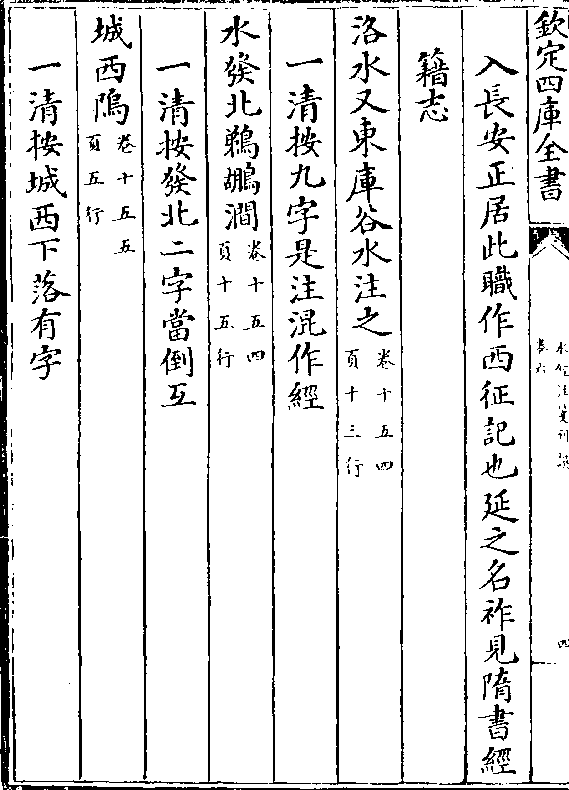 欽定四庫全書
水經注箋刊誤
卷六
四
入長安正居此職作西征記也延之名祚見隋書經
籍志
洛水又東庫谷水注之卷十五四頁十三行
一清按九字是注混作經
水發北鵜鶘澗卷十五四頁十五行
一清按發北二字當倒互
城西隖卷十五五頁五行
一清按城西下落有字